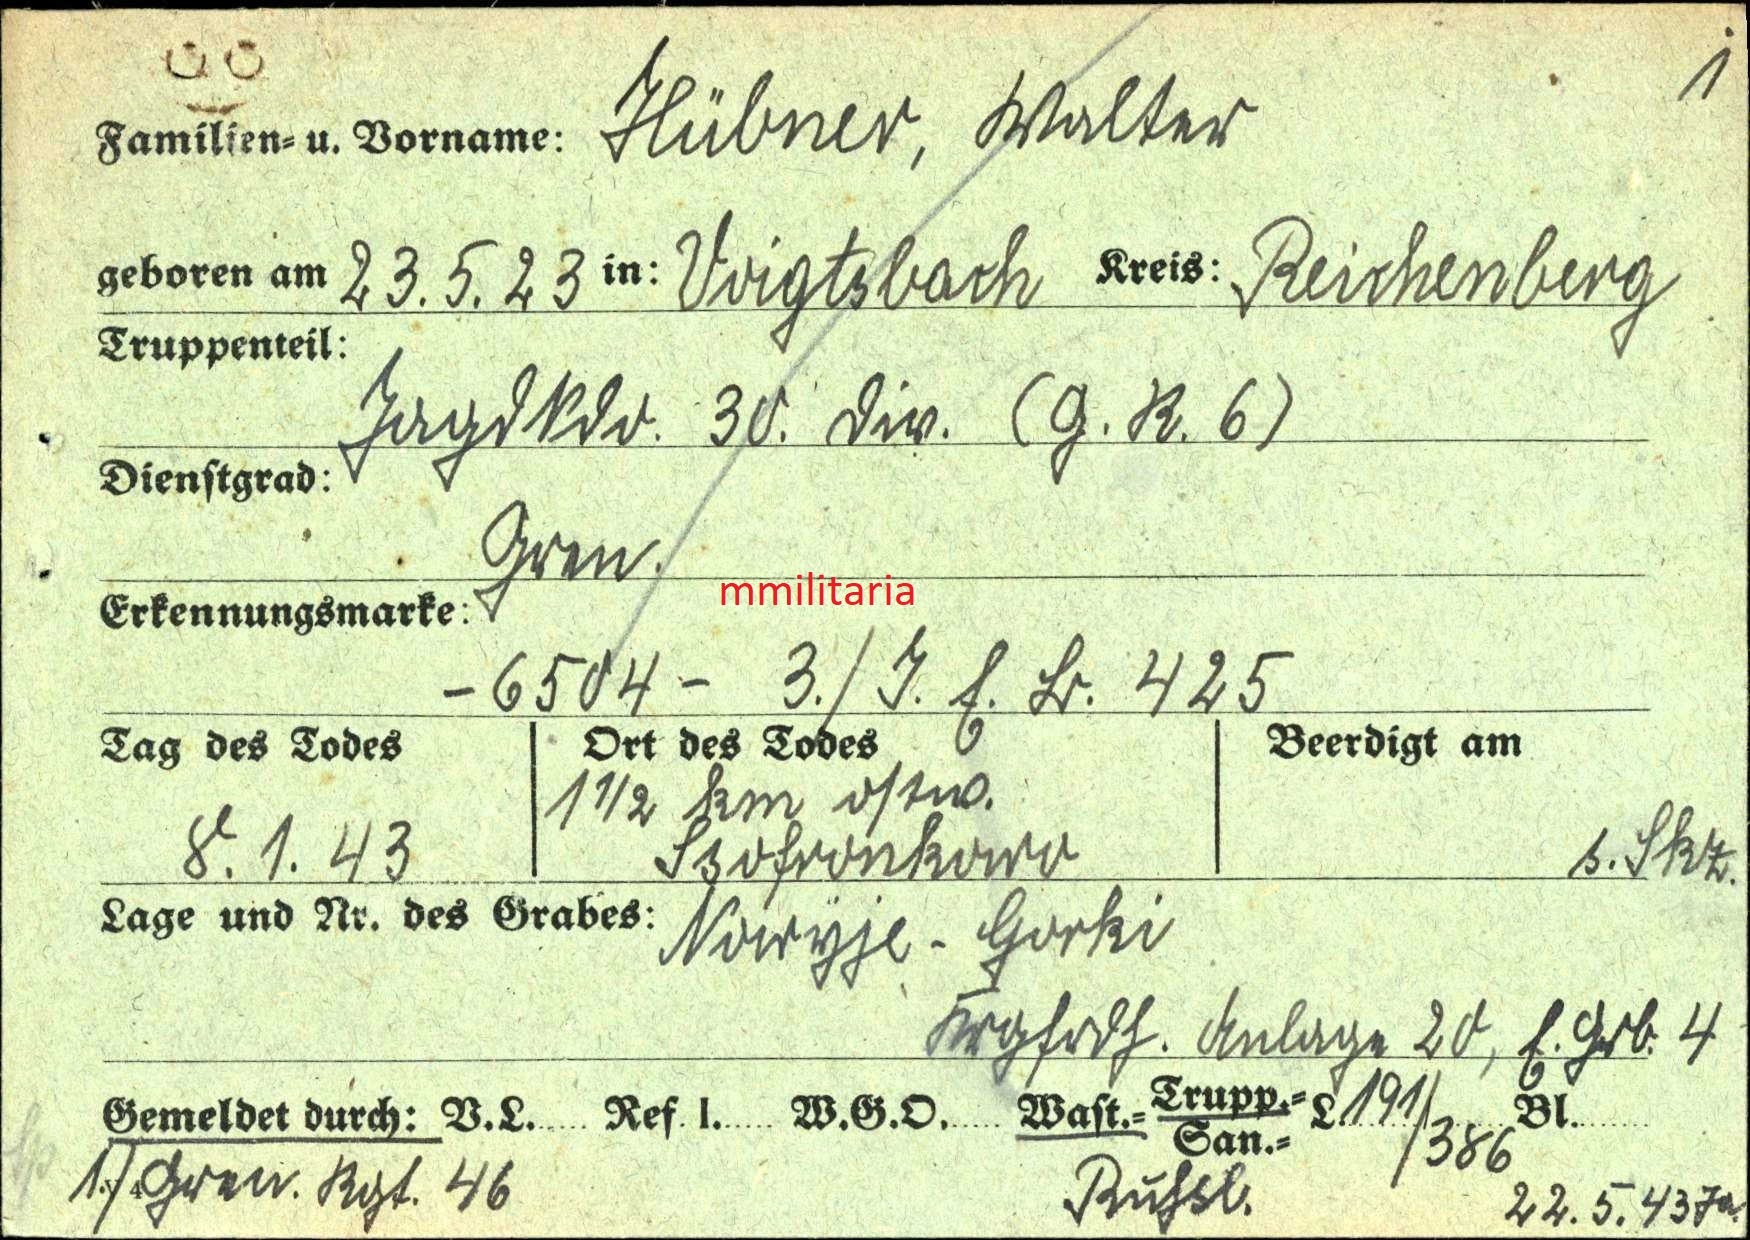 1
Familien- u. Vorname: Hübner, Walter
geboren am 23.5.23 in: Voigtsbach Kreis: Reichenberg
Truppenteil:
Jagdkdo. 30. Div. (G. R. 6)
Dienstgrad:
Gren.
mmilitaria
Erkennungsmarke:
- 6504 - 3./J. E. Br. 425
Tag des Todes Ort des Todes Beerdigt am
1 1/2 km ostw.
8. 1. 43 Ssofronkowo s. Skz.
Lage und Nr. des Grabes: Nowyje - Gorki
Krgfrdh. Anlage 20, E. Grb. 4
Gemeldet durch: V.L. Ref. I. W.G.O. Wast.- Trupp.- L. 191/386 Bl.
San.-
1./Gren. Rgt. 46 Rußl. 22.5.43